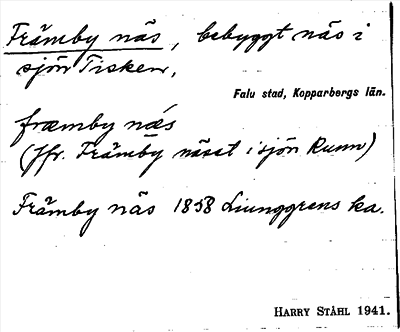 Främby näs, bebyggt näs i
sjön Tisken,
Falu stad, Kopparbergs län.
fræmby næ̀s
(Jfr. Främby näset i sjön Runn)
Främby näs 1858 Ljunggrens ka.
HARRY STÅHL 1941.